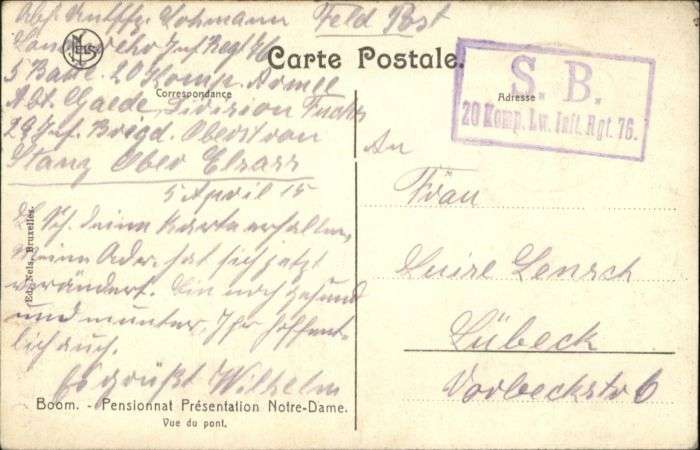 Abs. Untffz. Lohmann Feld Post
Landwehr Inf Regt 76
5 Batl. 20 Komp. Armee
Abt. Gaede, Division Fuchs
29 Inf. Brigd. Oberst von
Stanz Ober Elsass
5 April 15
L. Sch. deine Karte erhalten,
meine Adr. hat sich jetzt
verändert. Bin noch gesund
und munter, Ihr hoffent-
lich auch.
Es grüßt Wilhelm
NELS
Carte Postale.
Correspondance
Adresse
S. B.
20 Komp. Lw. Inft. Rgt. 76.
An
Frau
Luise Lensch
Lübeck
Vorbeckstr 6
Ed. Nels, Bruxelles.
Boom. - Pensionnat Présentation Notre-Dame.
Vue du pont.